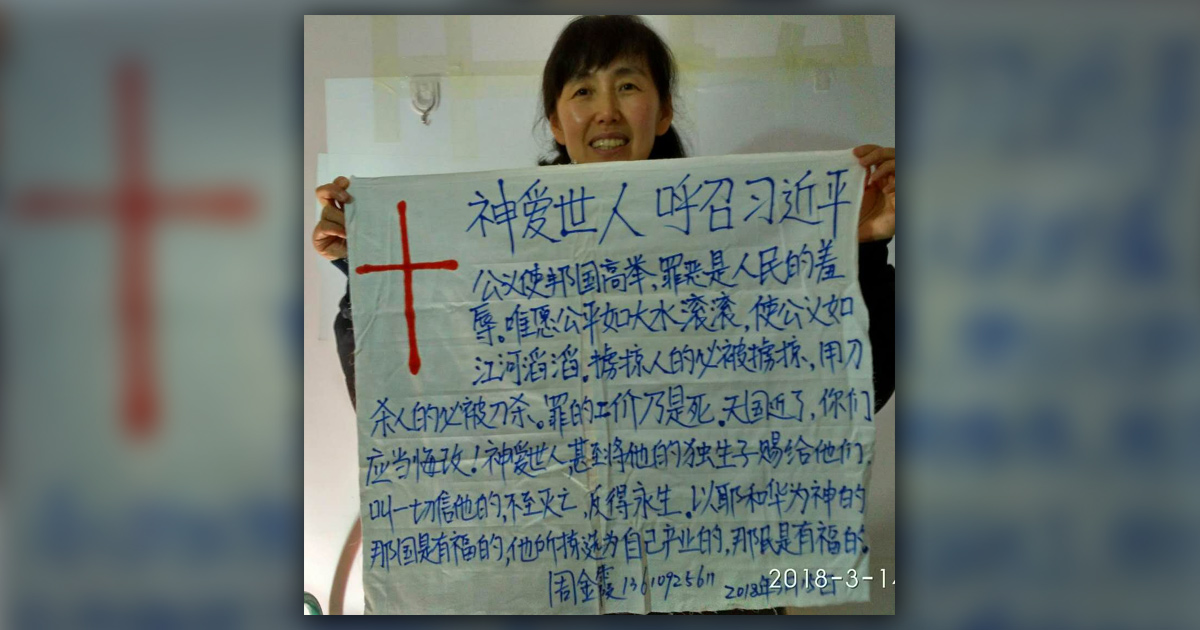 神爱世人 呼召习近平
公义使邦国高举，罪恶是人民的羞
辱。唯愿公平如大水滚滚，使公义如
江河滔滔。掳掠人的必被掳掠，用刀
杀人的必被刀杀。罪的工价乃是死。天国近了，你们
应当悔改！神爱世人甚至将他的独生子赐给他们，
叫一切信他的，不至灭亡，反得永生。以耶和华为神的
那国是有福的，他所拣选为自己产业的，那民是有福的。
周金霞13610925611
2018年3月15日
2018-3-14